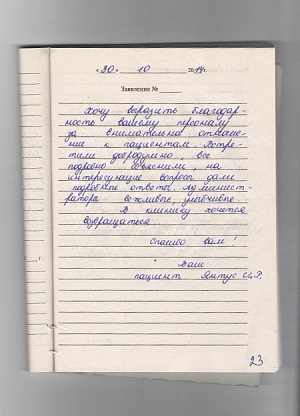 «30» 10 2014г.
Заявление №
Хочу выразить благодар-
ность вашему персоналу
за внимательное отноше-
ние к пациентам. Встре-
тили добродушно, все
подробно объяснили, на
интересующие вопросы дали
подробные ответы. Админист-
ратора вежливые, улыбчивые
В клинику хочется
возвращаться
Спасибо вам!
Ваш
пациент Янтус С.Р.
23